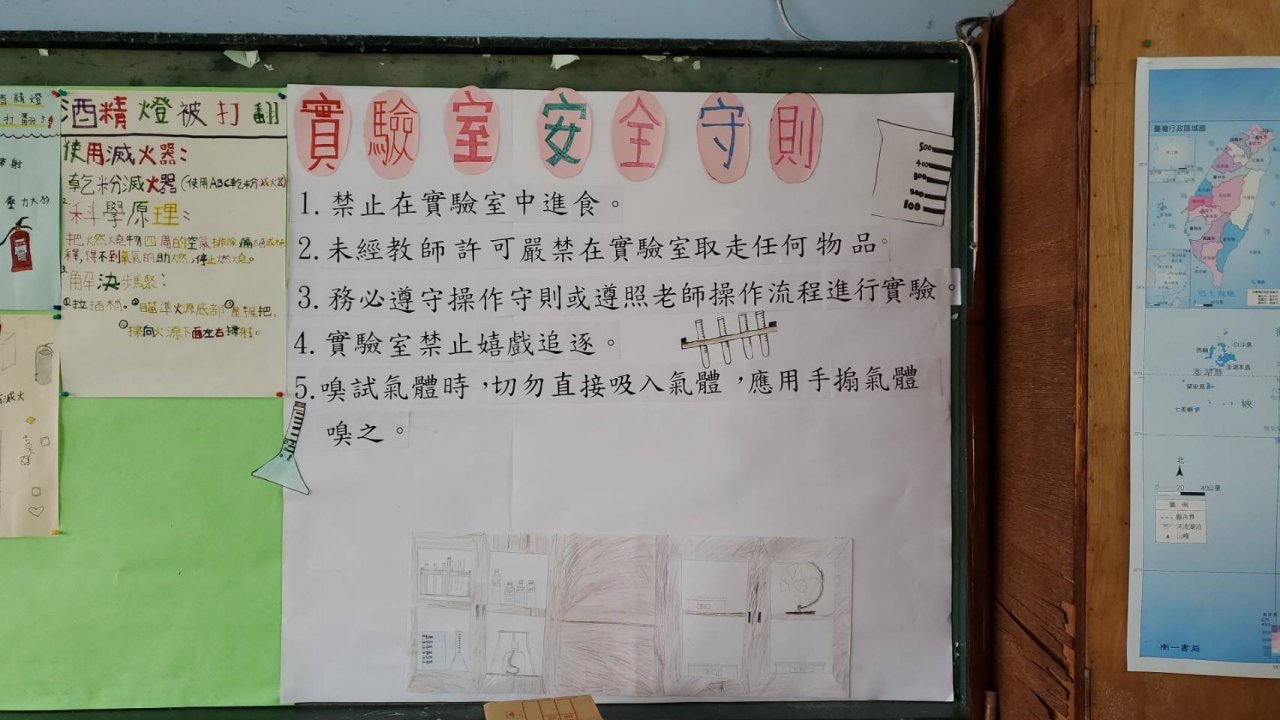 酒精燈被打翻
使用滅火器:
乾粉滅火器(使用ABC乾粉滅火器
2.
科學原理:
把火燃燒物四周的空氣排除,
釋,得不到氧氣的助燃,停止燃燒。
3.
解決步驟:
①拉插梢,②瞄準火源底部③壓板把,
④掃向火源下面左右掃射。
實驗室安全守則
1. 禁止在實驗室中進食。
2. 未經教師許可嚴禁在實驗室取走任何物品。
3. 務必遵守操作守則或遵照老師操作流程進行實驗。
4. 實驗室禁止嬉戲追逐。
5. 嗅試氣體時,切勿直接吸入氣體,應用手搧氣體
嗅之。
500
400
300
200
100
酒精燈
壓力大
滅火
臺灣行政區域圖
白沙島
西嶼
澎湖本島
澎湖縣
望安島
七美嶼
北
0 20 40公里
圖例
縣市界
河流湖泊
山峰
南一書局